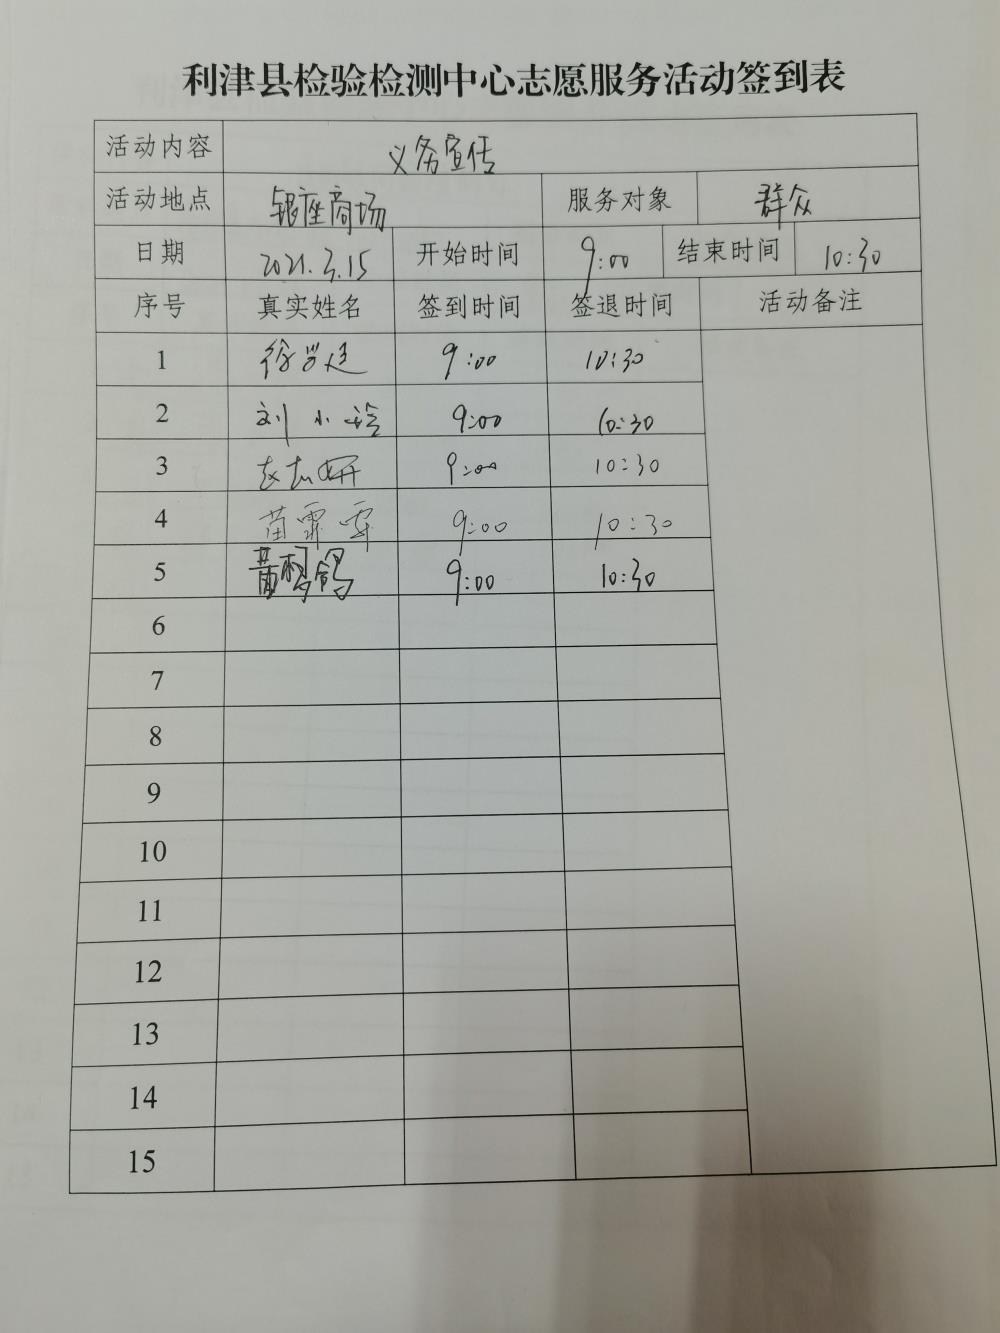 利津县检验检测中心志愿服务活动签到表
活动内容 义务宣传
活动地点 银座商场 服务对象 群众
日期 2021.3.15 开始时间 9:00 结束时间 10:30
序号 真实姓名 签到时间 签退时间 活动备注
1 9:00 10:30
2 刘小玲 9:00 10:30
3 9:00 10:30
4 苗霏雯 9:00 10:30
5 9:00 10:30
6
7
8
9
10
11
12
13
14
15